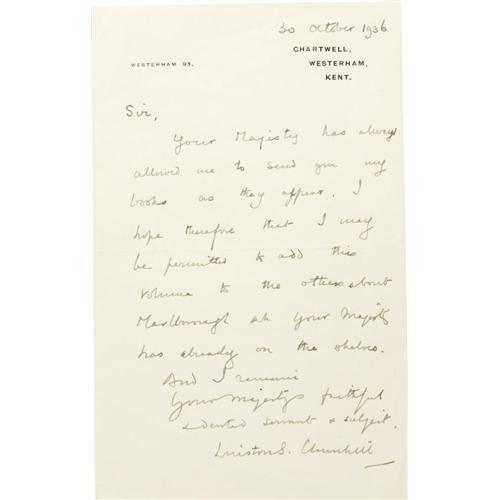 30 October 1936
CHARTWELL,
WESTERHAM 93. WESTERHAM,
KENT.
Sir,
Your Majesty has always
allowed me to send you my
books as they appear. I
hope therefore that I may
be permitted to add this
volume to the others about
Marlborough wh Your Majesty
has already on the shelves.
And I remain
Your Majesty's faithful
& devoted servant & subject.
Winston S. Churchill